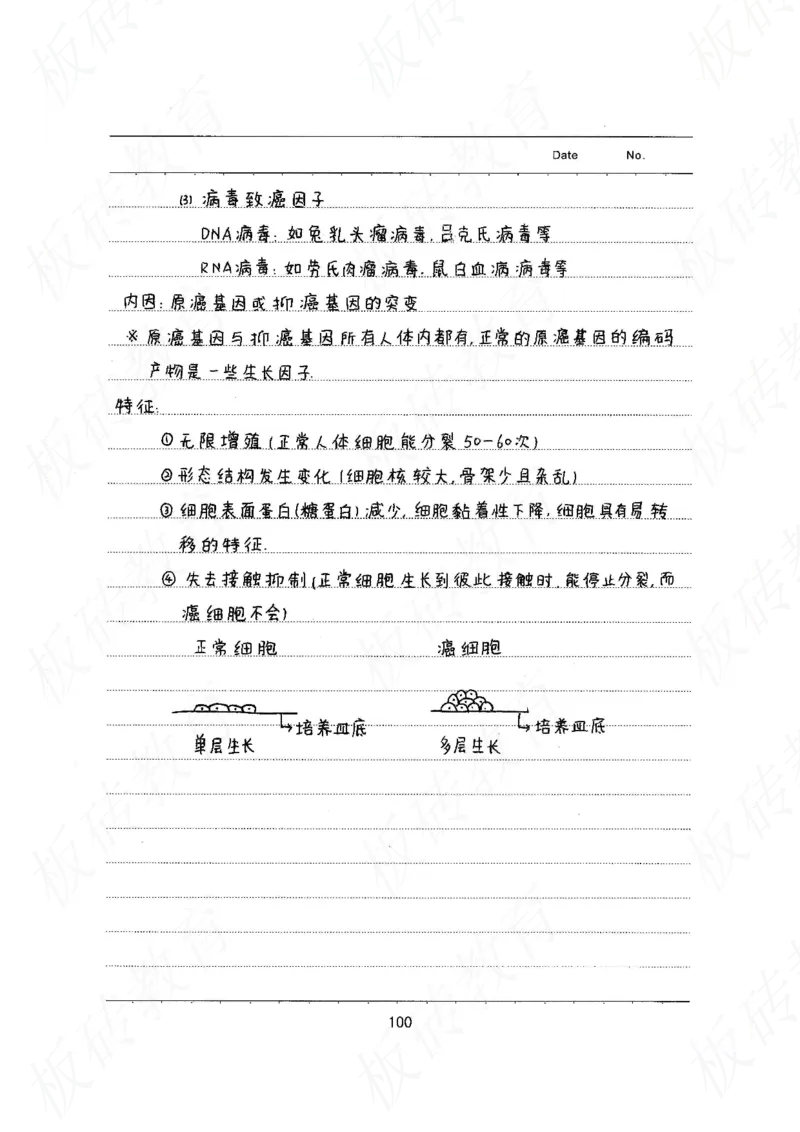 Date No.
(3) 病毒致癌因子
DNA病毒：如兔乳头瘤病毒，吕克氏病毒等
RNA病毒：如劳氏肉瘤病毒，鼠白血病病毒等
内因：原癌基因或抑癌基因的突变
※ 原癌基因与抑癌基因所有人体内都有，正常的原癌基因的编码
产物是一些生长因子.
特征：
①无限增殖(正常人体细胞能分裂50-60次)
②形态结构发生变化(细胞核较大，骨架少且杂乱)
③细胞表面蛋白(糖蛋白)减少，细胞黏着性下降，细胞具有易转
移的特征.
④失去接触抑制(正常细胞生长到彼此接触时，能停止分裂，而
癌细胞不会)
正常细胞 癌细胞
培养皿底 培养皿底
单层生长 多层生长
100
板砖教育